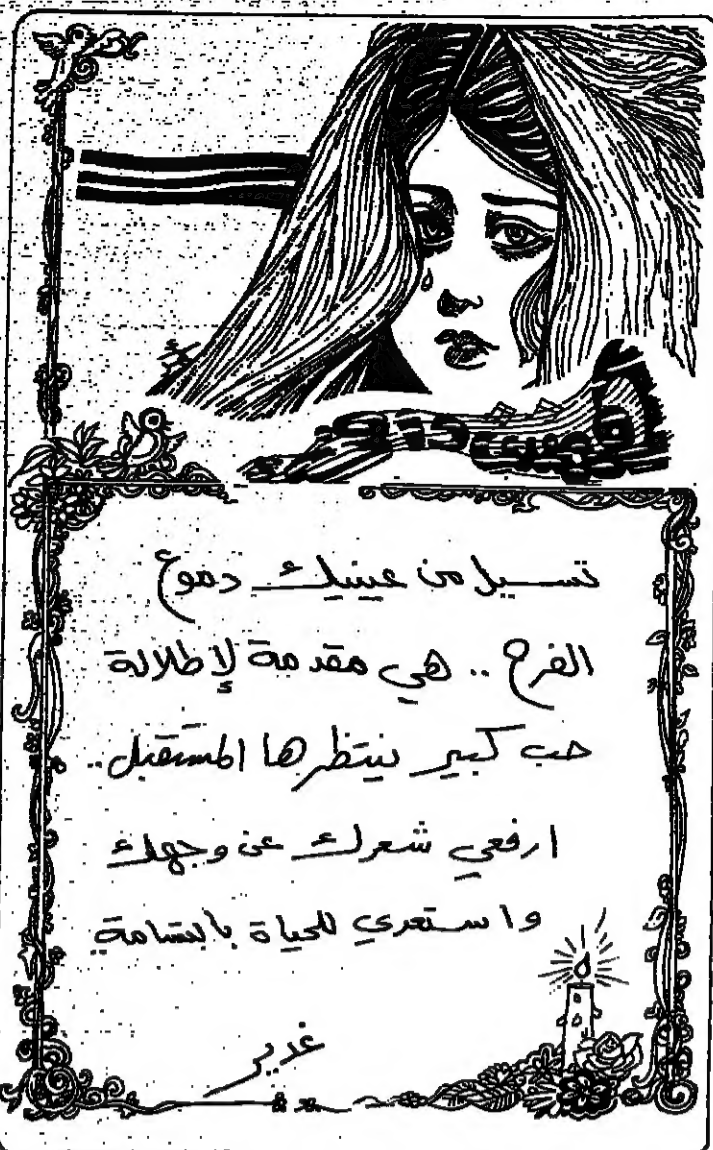 تسيل من عينيك دموع
الفرح .. هي مقدمة لإطلالة
حب كبير ينتظرها المستقبل..
ارفعي شعرك عن وجهك
واستعدي للحياة بابتسامة
غدير